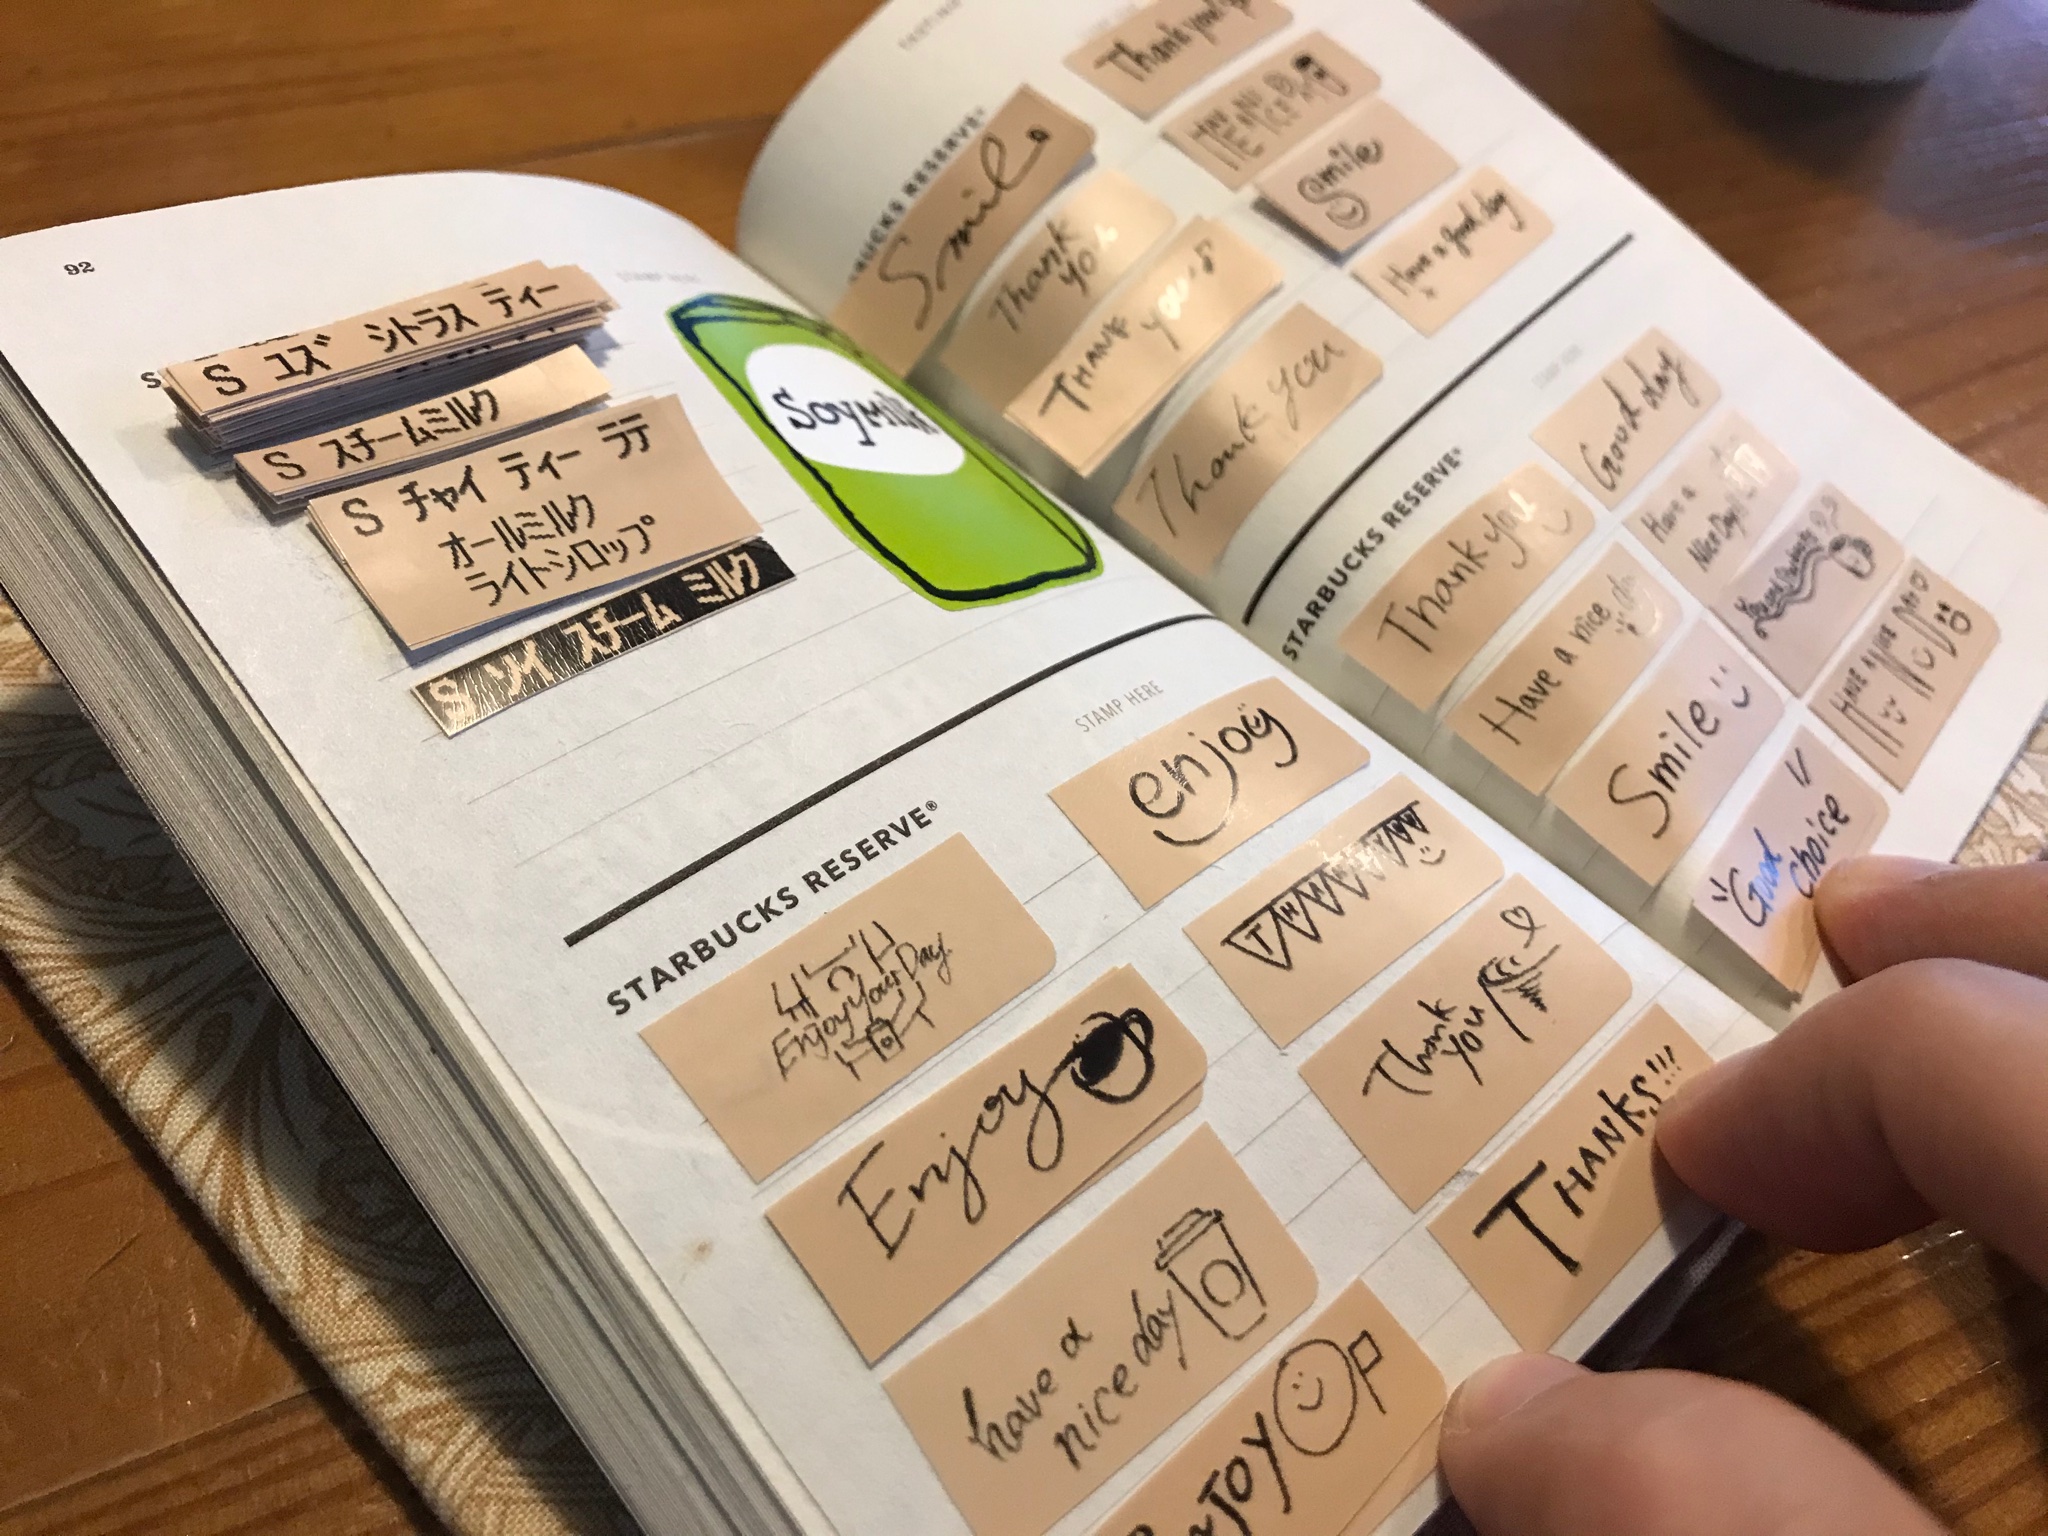 92
STAMP HERE
S ユズ シトラス ティー
S スチームミルク
S チャイ ティー ラテ
オールミルク
ライトシロップ
S ソイ スチーム ミルク
Soymilk
STARBUCKS RESERVE®
STAMP HERE
enjoy
Enjoy Your Day.
Enjoy
have a
nice day
Thank
you
THANKS!!!
RESERVE®
Smile
Thank
you
THANK you
Thank you
Thank you
Smile
Have a good day
STARBUCKS RESERVE®
Thank you
Have a nice day
Smile
Good
choice
Good day
Have a
Nice Day!!
HAVE A NICE